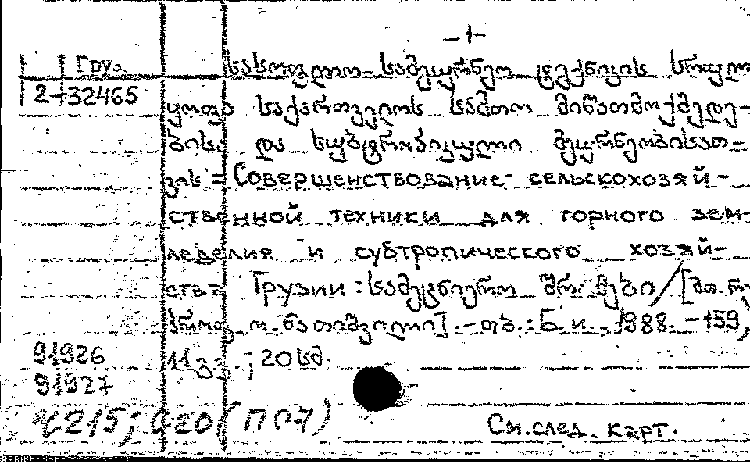 -1-
Груз. სასოფლო სამეურნეო ტექნიკის სრულ-
2-32465 ყოფა საქართველოს სამთო მიწათმოქმედე-
ბისა და სუბტროპიკული მეურნეობისათ-
ვის = Совершенствование сельскохозяй-
ственной техники для горного зем-
леделия и субтропического хозяй-
ства Грузии : სამეცნიერო შრ. /[მთ. რ
ნათიშვილი]. - თბ. : Б. и. 1988. - 159,
91926 11 გვ. ; 20 სმ.
91927
4215; 020 (ПП7)
См. след. карт.